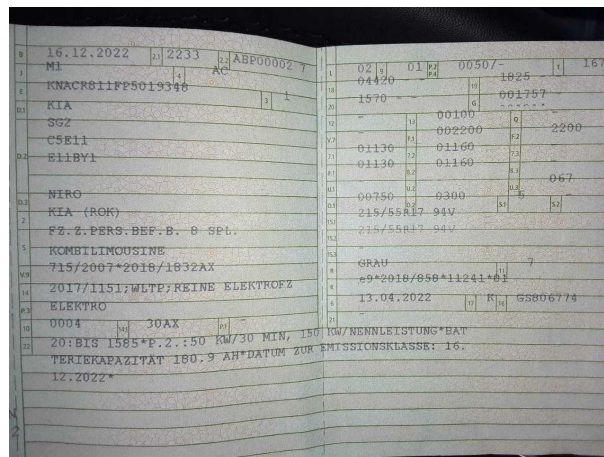 B 16.12.2022 2.1 2233 2.2 ABP00002 7
J M1 4 AC
E KNACR811FP5019348 3 1
D.1 KIA
SG2
D.2 C5E11
E11BY1
D.3 NIRO
2 KIA (ROK)
5 FZ.Z.PERS.BEF.B. 8 SPL.
KOMBILIMOUSINE
V.9 715/2007*2018/1832AX
14 2017/1151;WLTP;REINE ELEKTROFZ
P.3 ELEKTRO
10 0004 14.1 30AX P.1 -
22 20:BIS 1585*P.2.:50 KW/30 MIN, 150 KW/NENNLEISTUNG*BAT
TERIEKAPAZITÄT 180.9 AH*DATUM ZUR EMISSIONSKLASSE: 16.
12.2022*
L 02 9 01 P.2 P.4 00507/- T 167
18 04420 - 19 1825 -
20 1570 - G 001757 -
12 - 13 00100 Q -
V.7 - F.1 002200 F.2 2200
7.1 01130 7.2 01160 7.3 -
8.1 01130 8.2 01160 8.3 -
U.1 - U.2 - U.3 067
O.1 00750 O.2 0300 S.1 5 S.2 -
15.1 215/55R17 94V
15.2 215/55R17 94V
15.3 -
R GRAU 11 7
K e9*2018/858*11241*01
6 13.04.2022 17 K 16 GS806774
21 -